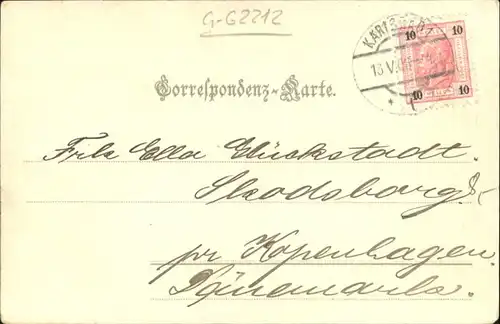 G-G2212
KARLSBAD
13.V.
10 10
10 10
1
Correspondenz-Karte.
Frk Ella Glückstadt.
Skodsborg
pr Kopenhagen.
Dänemark.